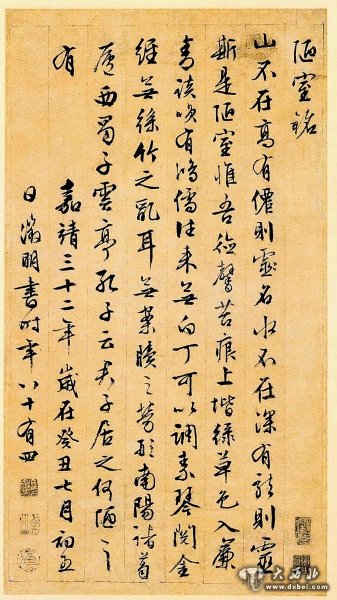 陋室銘
山不在高有僊則靈名水不在深有龍則靈
斯是陋室惟吾德馨苔痕上堦綠草色入簾
青談咲有鴻儒往來無白丁可以調素琴閱金
經無絲竹之亂耳無案牘之勞形南陽諸葛
廬西蜀子雲亭孔子云君子居之何陋之
有
嘉靖三十二年歲在癸丑七月初五
日徵明書時年八十有四
大西北
www.dxbei.com